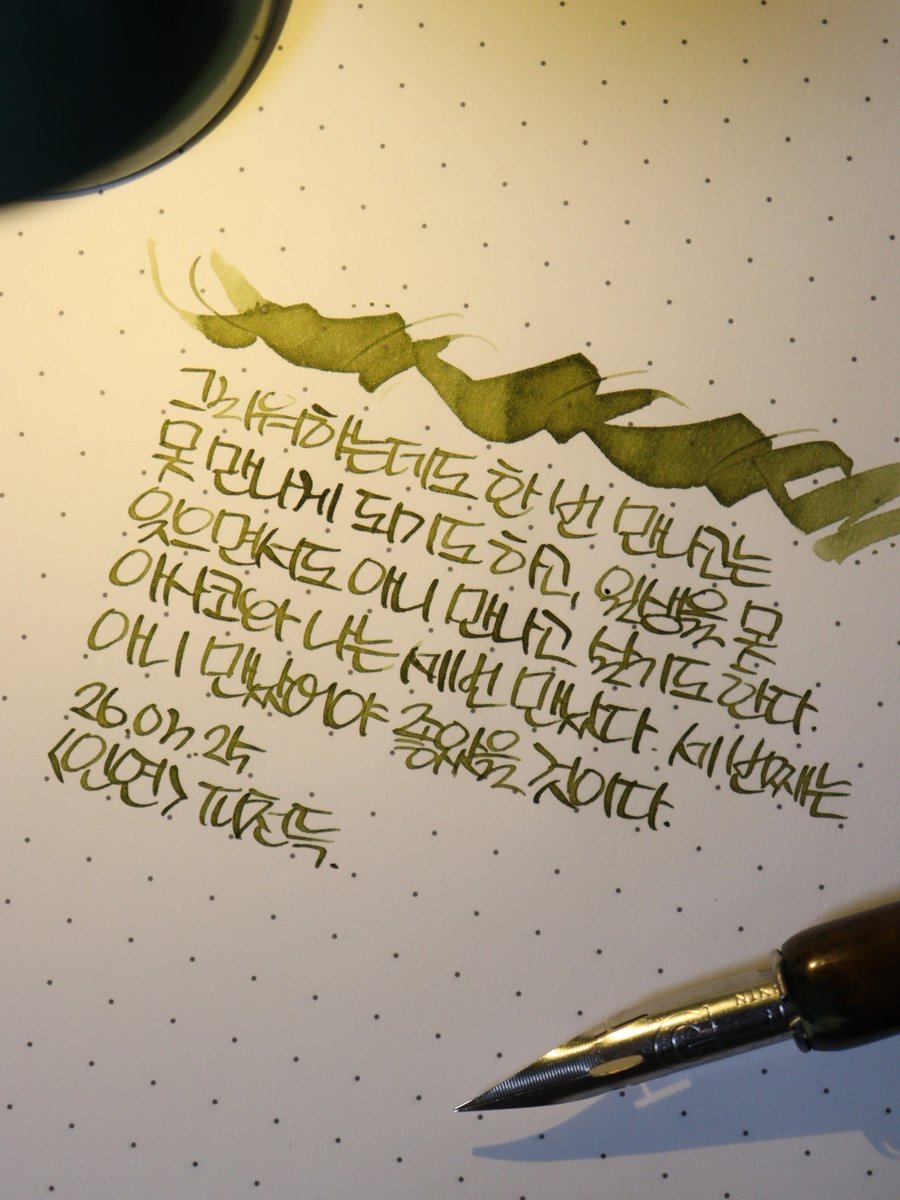 그리워하는데도 한 번 만나고는
못 만나게 되기도 하고, 일생을 못
잊으면서도 아니 만나고 살기도 한다.
아사코와 나는 세번 만났다. 세번째는
아니 만났어야 좋았을 것이다.
26.07.25
<인연> 피천득.
NIK
G